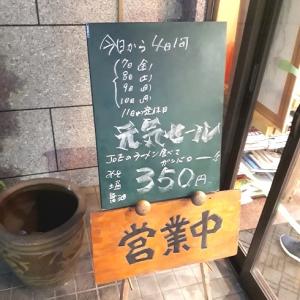 今日から4日间
7日(金)
8日(土)
9日(日)
10日(月)
11日が定休日
元気セール
JoEのラーメン食べて
ガンバロー
みそ
塩
醤油
350円
営業中